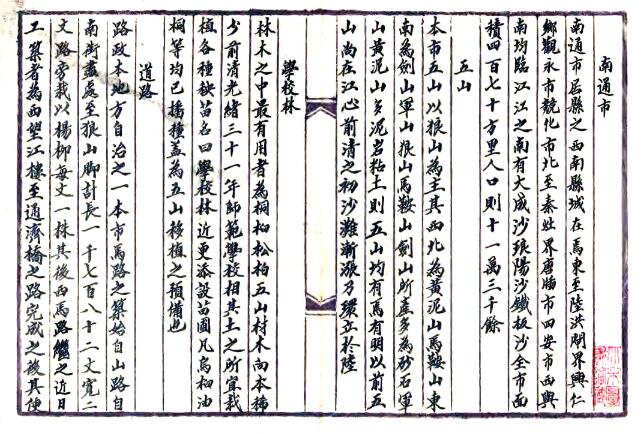 南通市
南通市居縣之西南縣城在焉東至陸洪閘界興仁
鄉觀永市競化市北至秦灶界唐牐市四安市西與
南均臨江江之南有大成沙琅陽沙鐵板沙全市面
積四百七十方里人口則十一萬三千餘
五山
本市五山以狼山為主其西北為黄泥山馬鞍山東
南為劍山軍山狼山馬鞍山劍山所產多為砂石軍
山黄泥山多泥岩粘土則五山均有焉有明以前五
山尚在江心前清之初沙灘漸漲乃環立於陸
學校林
林木之中最有用者為桐桕松柏五山材木向本稀
少前清光緒三十一年師範學校相其土之所宜栽
植各種秧苗名曰學校林近更添設苗圃凡烏桕油
桐等均已播種蓋為五山移植之預備也
道路
路政本地方自治之一本市馬路之築始自山路自
南街盡處至狼山脚計長一千七百八十二丈寬二
丈路旁栽以楊柳每丈一株其後西馬路繼之近日
工築者為西望江樓至通濟橋之路完成之後其便